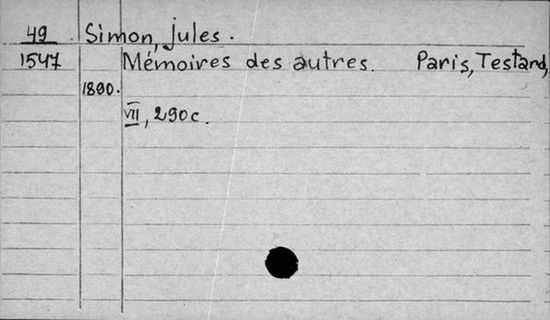 49 Simon, Jules.
1547 Mémoires des autres. Paris, Testard,
1890.
VII, 290c.